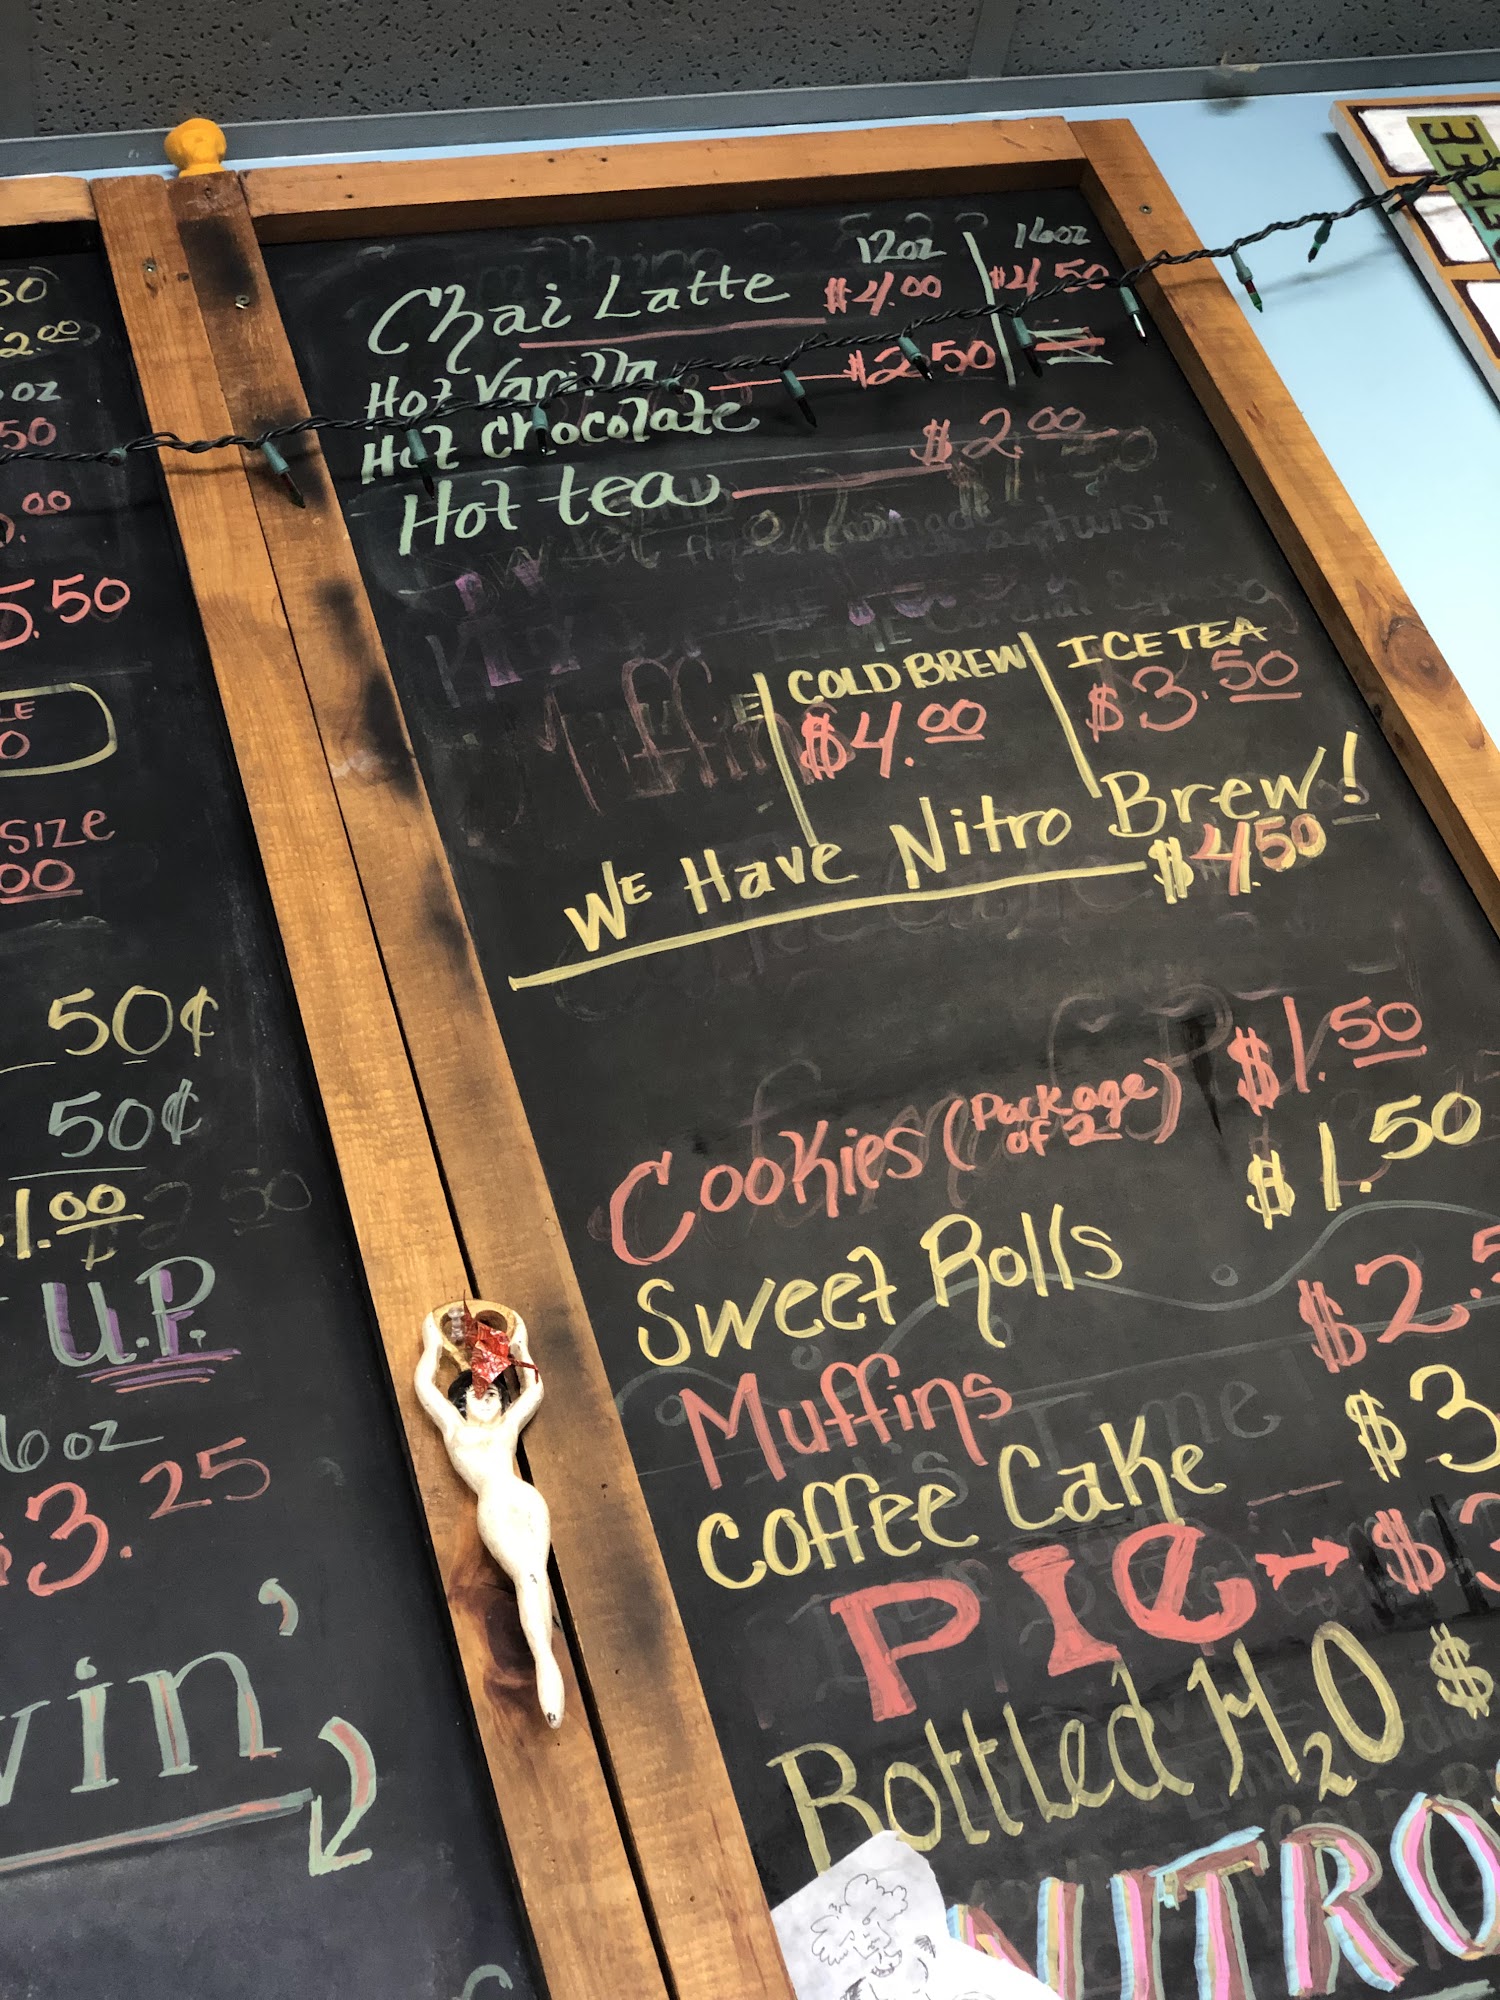 50
2.00
oz
50
.00
5.50
LE
0
SIZE
00
50¢
50¢
1.00
U.P.
16oz
$3.25
vin'
12oz 16oz
Chai Latte $4.00 $4.50
Hot Vanilla $2.50
Hot Chocolate
Hot tea $2.00
COLD BREW ICE TEA
$4.00 $3.50
WE Have Nitro Brew!
$4.50
Cookies (Package of 2) $1.50
Sweet Rolls $1.50
Muffins $2.5
Coffee Cake $3
PIE → $3
Bottled H2O $
NITRO